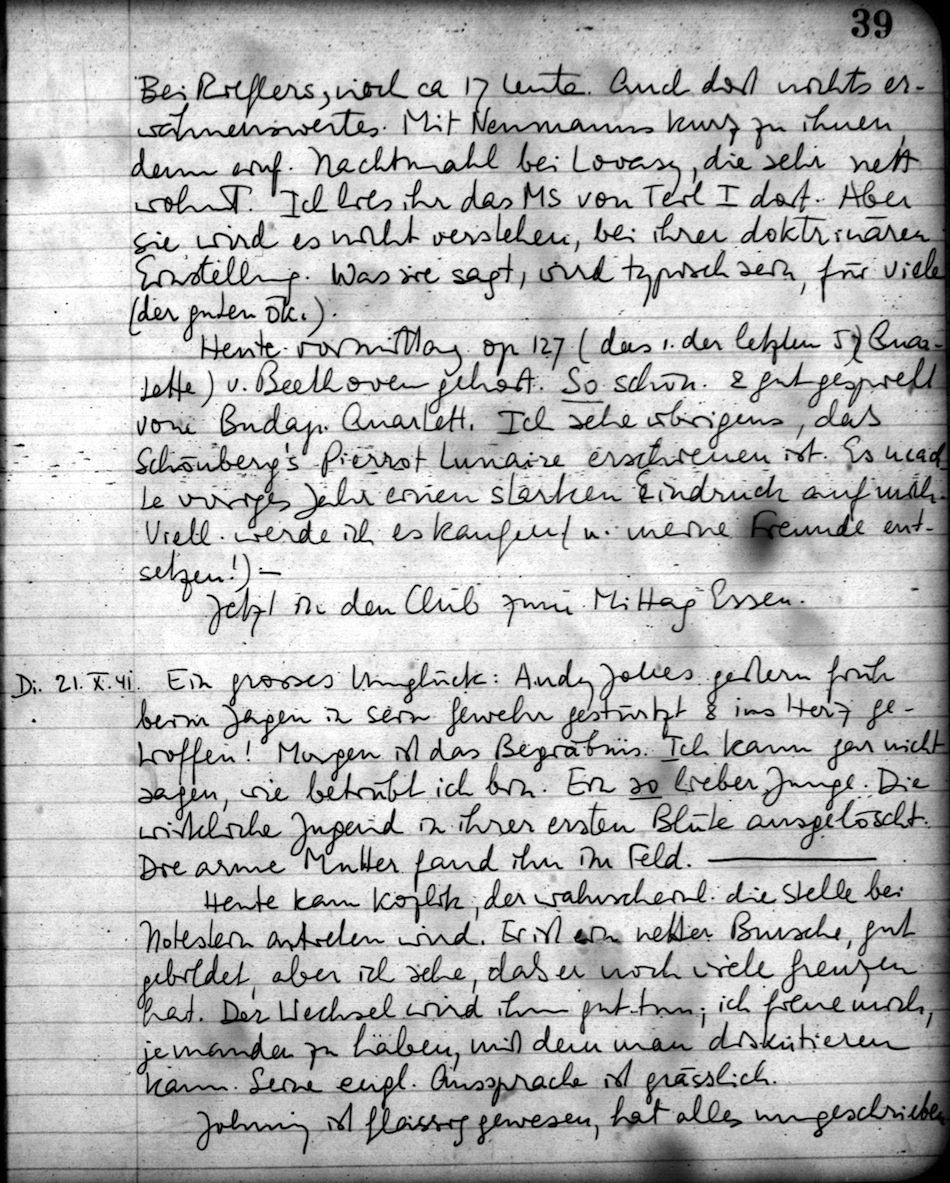 39
Bei Rieflers, noch ca 17 Leute. Auch dort nichts er-
wähnenswertes. Mit Neumanns kurz zu ihnen,
dann Nachtmahl bei Lovasy, die sehr nett
wohnt. Ich lies ihr das MS von Teil I dort. Aber
sie wird es nicht verstehen, bei ihrer doktrinären
Einstellung. Was sie sagt, wird typisch sein, für viele
(der guten Ök.).
Heute vormittag op 127 (das 1. der letzten 5) Quar-
tette) v. Beethoven gehört. So schön. & gut gespielt
vom Budap. Quartett. Ich sehe übrigens, dass
Schönberg's Pierrot Lunaire erschienen ist. Es mach
te voriges Jahr einen starken Eindruck auf mich.
Viell. werde ich es kaufen (u. meine Freunde ent-
setzen!) —
Jetzt in den Club zum Mittag Essen.
Di. 21. X. 41. Ein grosses Unglück: Andy Jolles gestern früh
beim Jagen in sein Gewehr gestürtzt & ins Herz ge-
troffen! Morgen ist das Begräbnis. Ich kann gar nicht
sagen, wie betrübt ich bin. Ein so lieber Junge. Die
wirkliche Jugend in ihrer ersten Blüte ausgelöscht.
Die arme Mutter fand ihn im Feld. ———
Heute kam der wahrscheinl. die Stelle bei
Notestein antreten wird. Er ist ein netter Bursche, gut
gebildet, aber ich sehe, dass er noch viele Grenzen
hat. Der Wechsel wird ihm gut tun; ich freue mich,
jemanden zu haben, mit dem man diskutieren
kann. Seine engl. Aussprache ist grässlich.
Johnny ist fleissig gewesen, hat alles umgeschrieben